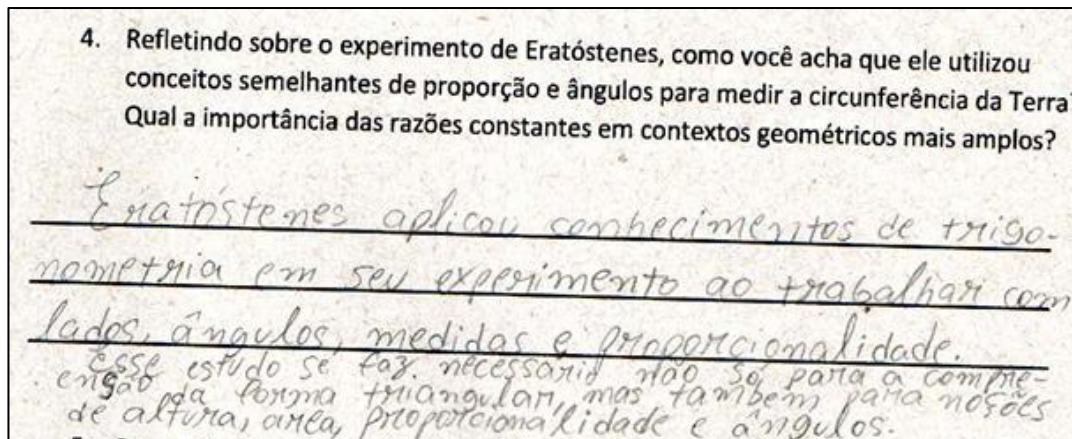 4. Refletindo sobre o experimento de Eratóstenes, como você acha que ele utilizou
conceitos semelhantes de proporção e ângulos para medir a circunferência da Terra
Qual a importância das razões constantes em contextos geométricos mais amplos?
Eratóstenes aplicou conhecimentos de trigo-
nometria em seu experimento ao trabalhar com
lados, ângulos, medidas e proporcionalidade.
Esse estudo se faz necessário não só para a compre-
ensão da forma triangular, mas também para noções
de altura, area, proporcionalidade e ângulos.